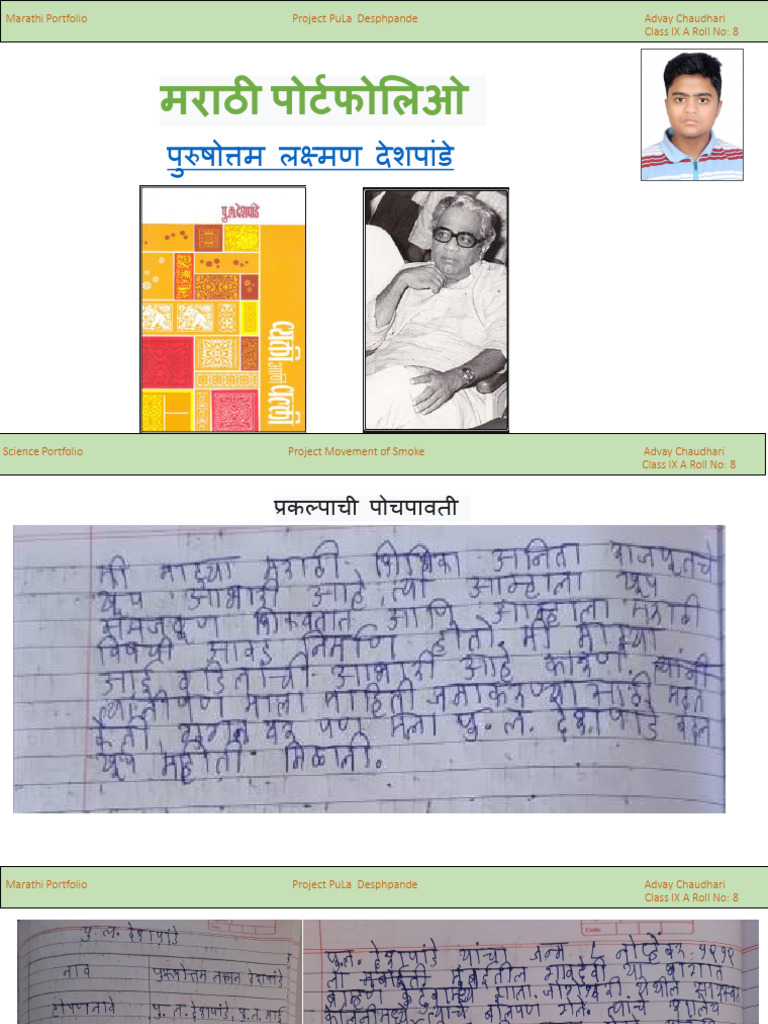 Marathi Portfolio Project PuLa Desphpande Advay Chaudhari
Class IX A Roll No: 8
मराठी पोर्टफोलिओ
पुरुषोत्तम लक्ष्मण देशपांडे
पु.ल.देशपांडे
व्यक्ती आणि वल्ली
Science Portfolio Project Movement of Smoke Advay Chaudhari
Class IX A Roll No: 8
प्रकल्पाची पोचपावती
मी माझ्या मराठी शिक्षिका अनिता राजपूतचे
खूप आभारी आहे त्या आम्हाला खूप
समजवूण शिकवतात आणि आम्हाला मराठी
विषयी आवड निर्माण होतो. मी माझ्या
आई वडिलांची आभारी आहे कारण त्यांनी
त्यांनीपण माला माहिती जमाकरण्यासाठी मदत
केली पण मला पु. ल. देशपांडे बद्दल
खूप माहीती मिळाली.
Marathi Portfolio Project PuLa Desphpande Advay Chaudhari
Class IX A Roll No: 8
पु. ल. देशपांडे
नाव पुरूषोत्तम लक्ष्मण देशपांडे
टोपणनावे पु. ल. देशपांडे, पु. ल. भाई
पु.ल. देशपांडे यांचा जन्म ८ नोव्हेंबर १९१९
ला मुंबईतील गावदेवी या भागात
झाला. जोगेश्वरी येथील सारस्वत
कॉलनीमध्ये त्यांचे बालपण गेले. त्यांचे